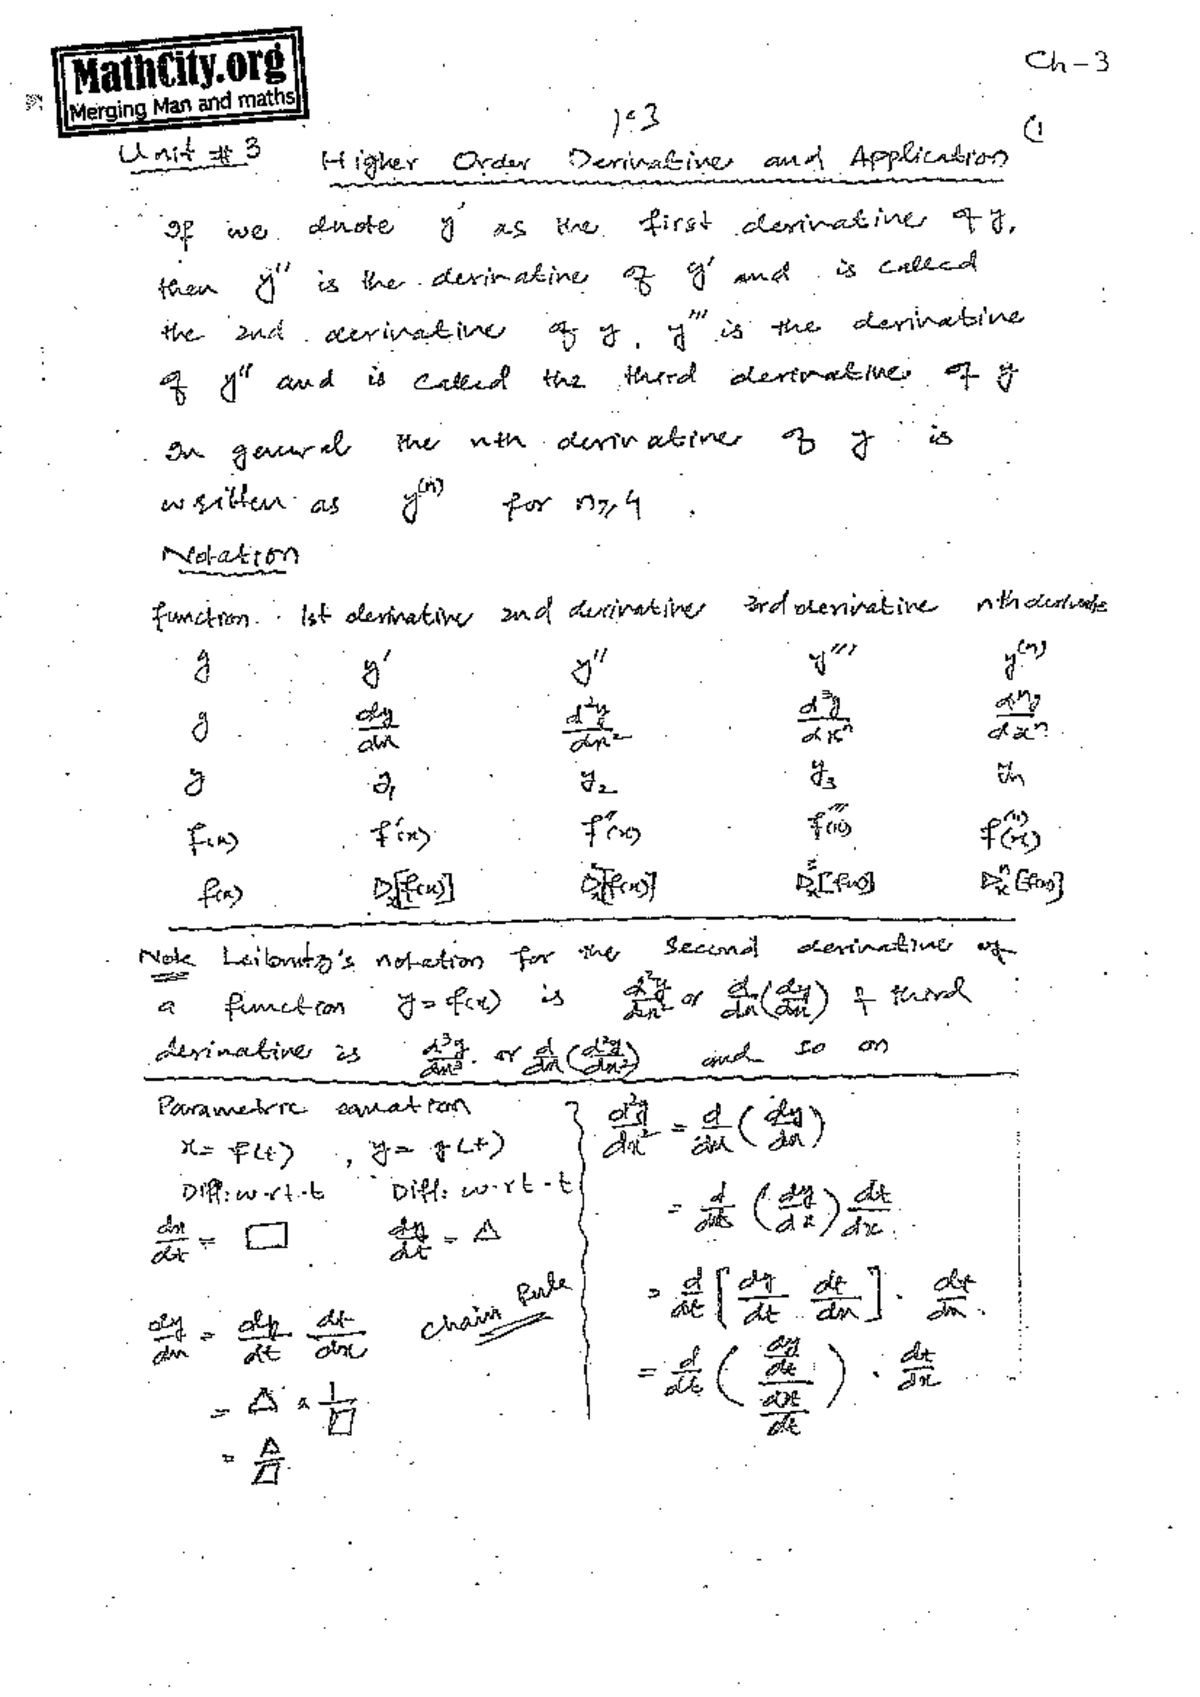 MathCity.org
Merging Man and maths
Ch-3
1:3
(1
Unit # 3 Higher Order Derivative and Application
If we dnote y' as the first derivative of y,
then y'' is the derivative of y' and is called
the 2nd derivative of y, y''' is the derivative
of y'' and is called the third derivative of y
In general the nth derivative of y is
written as y⁽ⁿ⁾ for n≥4.
Notation
function 1st derivative 2nd derivative 3rd derivative nth derivate
y y' y'' y''' y⁽ⁿ⁾
y dy/dx d²y/dx² d³y/dxⁿ dⁿy/dxⁿ
y y₁ y₂ y₃ yₙ
f(x) f'(x) f''(x) f'''(x) f⁽ⁿ⁾(x)
f(x) Dₓ[f(x)] D²ₓ[f(x)] D³ₓ[f(x)] Dⁿₓ[f(x)]
Note Leibnitz's notation for the second derivative of
a function y=f(x) is d²y/dx² or d/dx(dy/dx) & third
derivative is d³y/dx³ or d/dx(d²y/dx²) and so on
Parametric equation
x= f(t) , y= g(t)
Diff: w.r.t.t Diff: w.r.t.t
dx/dt = □ dy/dt = △
dy/dx = dy/dt dt/dx Chain Rule
= △ × 1/□
= △/□
d²y/dx² = d/dx (dy/dx)
= d/dt (dy/dx) dt/dx
= d/dt [dy/dt dt/dx] · dt/dx
= d/dt ((dy/dt)/(dx/dt)) · dt/dx